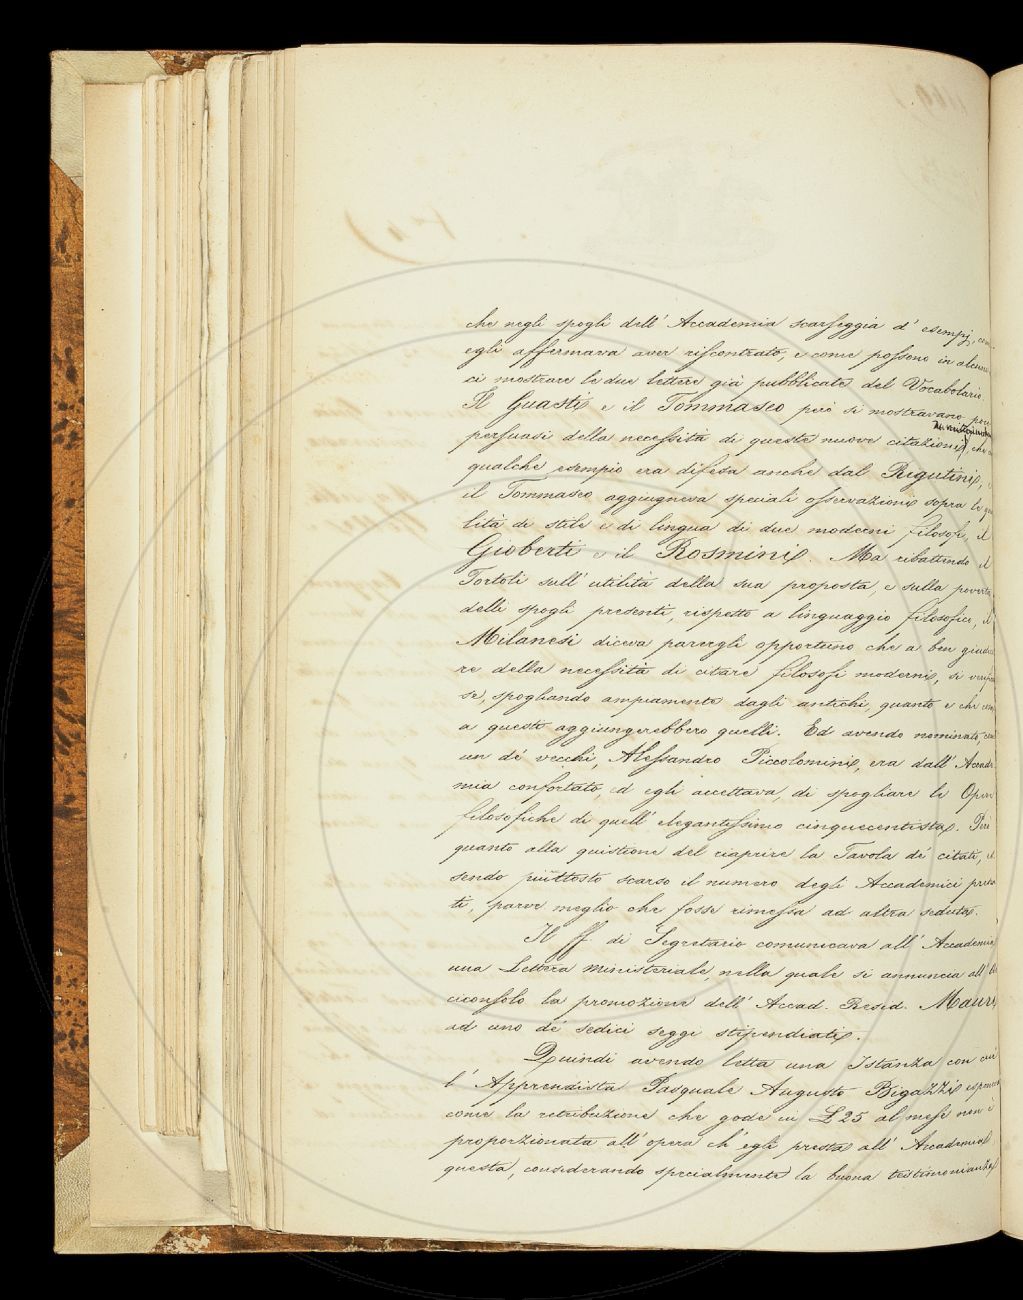 che negli spogli dell' Accademia scarseggia d' esempj, com
egli affermava aver riscontrato, e come possono in alcuna
ci mostrare le due lettere già pubblicate del Vocabolario.
Il Guasti e il Tommaseo però si mostravano poco
persuasi della necessità di queste nuove citazioni, che
qualche esempio era difesa anche dal Rigutini, e
il Tommaseo aggiugneva speciali osservazioni sopra le qua
lità di stile e di lingua di due moderni filosofi, il
Gioberti e il Rosmini. Ma ribattendo il
Tortoli sull' utilità della sua proposta, e sulla povertà
delli spogli presenti, rispetto a linguaggio filosofico, il
Milanesi diceva parergli opportuno che a ben giudica
re della necessità di citare filosofi moderni, si verifi
se, spogliando ampiamente dagli antichi, quanto e che cosa
a questo aggiungerebbero quelli. Ed avendo nominato, com
un de' vecchi, Alessandro Piccolomini, era dall' Accade
mia confortato, ed egli accettava, di spogliare le Opere
filosofiche di quell' elegantissimo cinquecentista. Per
quanto alla quistione del riaprire la Tavola de' citati, es
sendo piuttosto scarso il numero degli Accademici presen
ti, parve meglio che fosse rimessa ad altra seduta.
Il ff. di Segretario comunicava all' Accademia
una Lettera ministeriale, nella quale si annuncia all' Ar
ciconsolo la promozione dell' Accad. Resid. Mauri
ad uno de' sedici seggi stipendiati.
Quindi avendo letta una Istanza con cui
l' Apprendista Pasquale Augusto Bigazzi espone
come la retribuzione che gode in £ 25 al mese non è
proporzionata all' opera ch' egli presta all' Accademia
questa, considerando specialmente la buona testimonianza